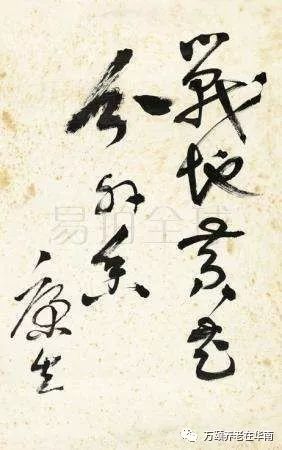 戰地黄花
分外香
康生
易拍全球
方颐养老在华南